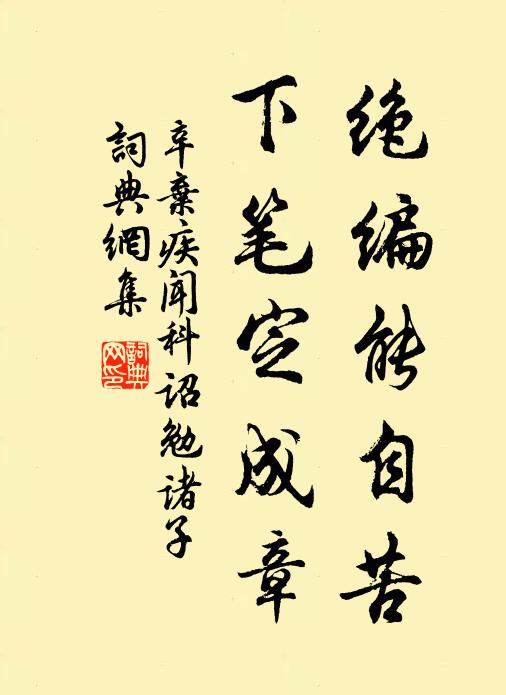 绝编能自苦
下笔定成章
辛棄疾闻科诏勉诸子
詞典網集
詞典網印